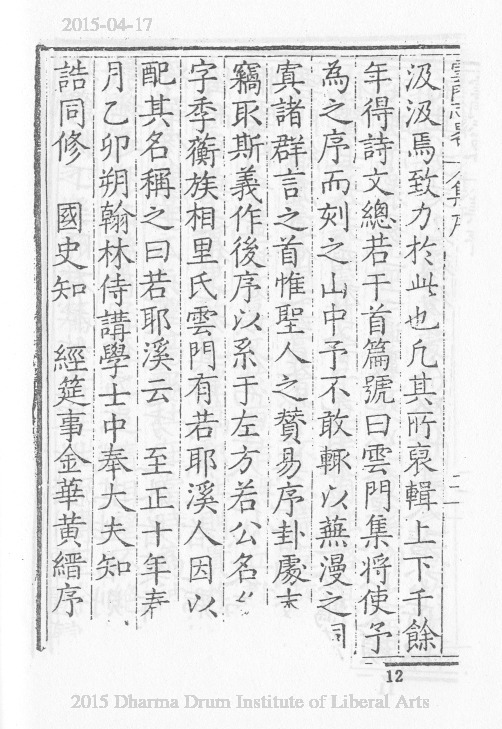 2015-04-17
雲門志畧 集序
二
汲汲焉致力於此也凡其所裒輯上下千餘
年得詩文總若干首篇號曰雲門集將使予
為之序而刻之山中予不敢輙以蕪漫之詞
寘諸群言之首惟聖人之贊易序卦處末
竊取斯義作後序以系于左方若公名
字季蘅族相里氏雲門有若耶溪人因以
配其名稱之曰若耶溪云 至正十年春
月乙卯朔翰林侍講學士中奉大夫知
誥同修 國史知 經筵事金華黃縉序
12
2015 Dharma Drum Institute of Liberal Arts